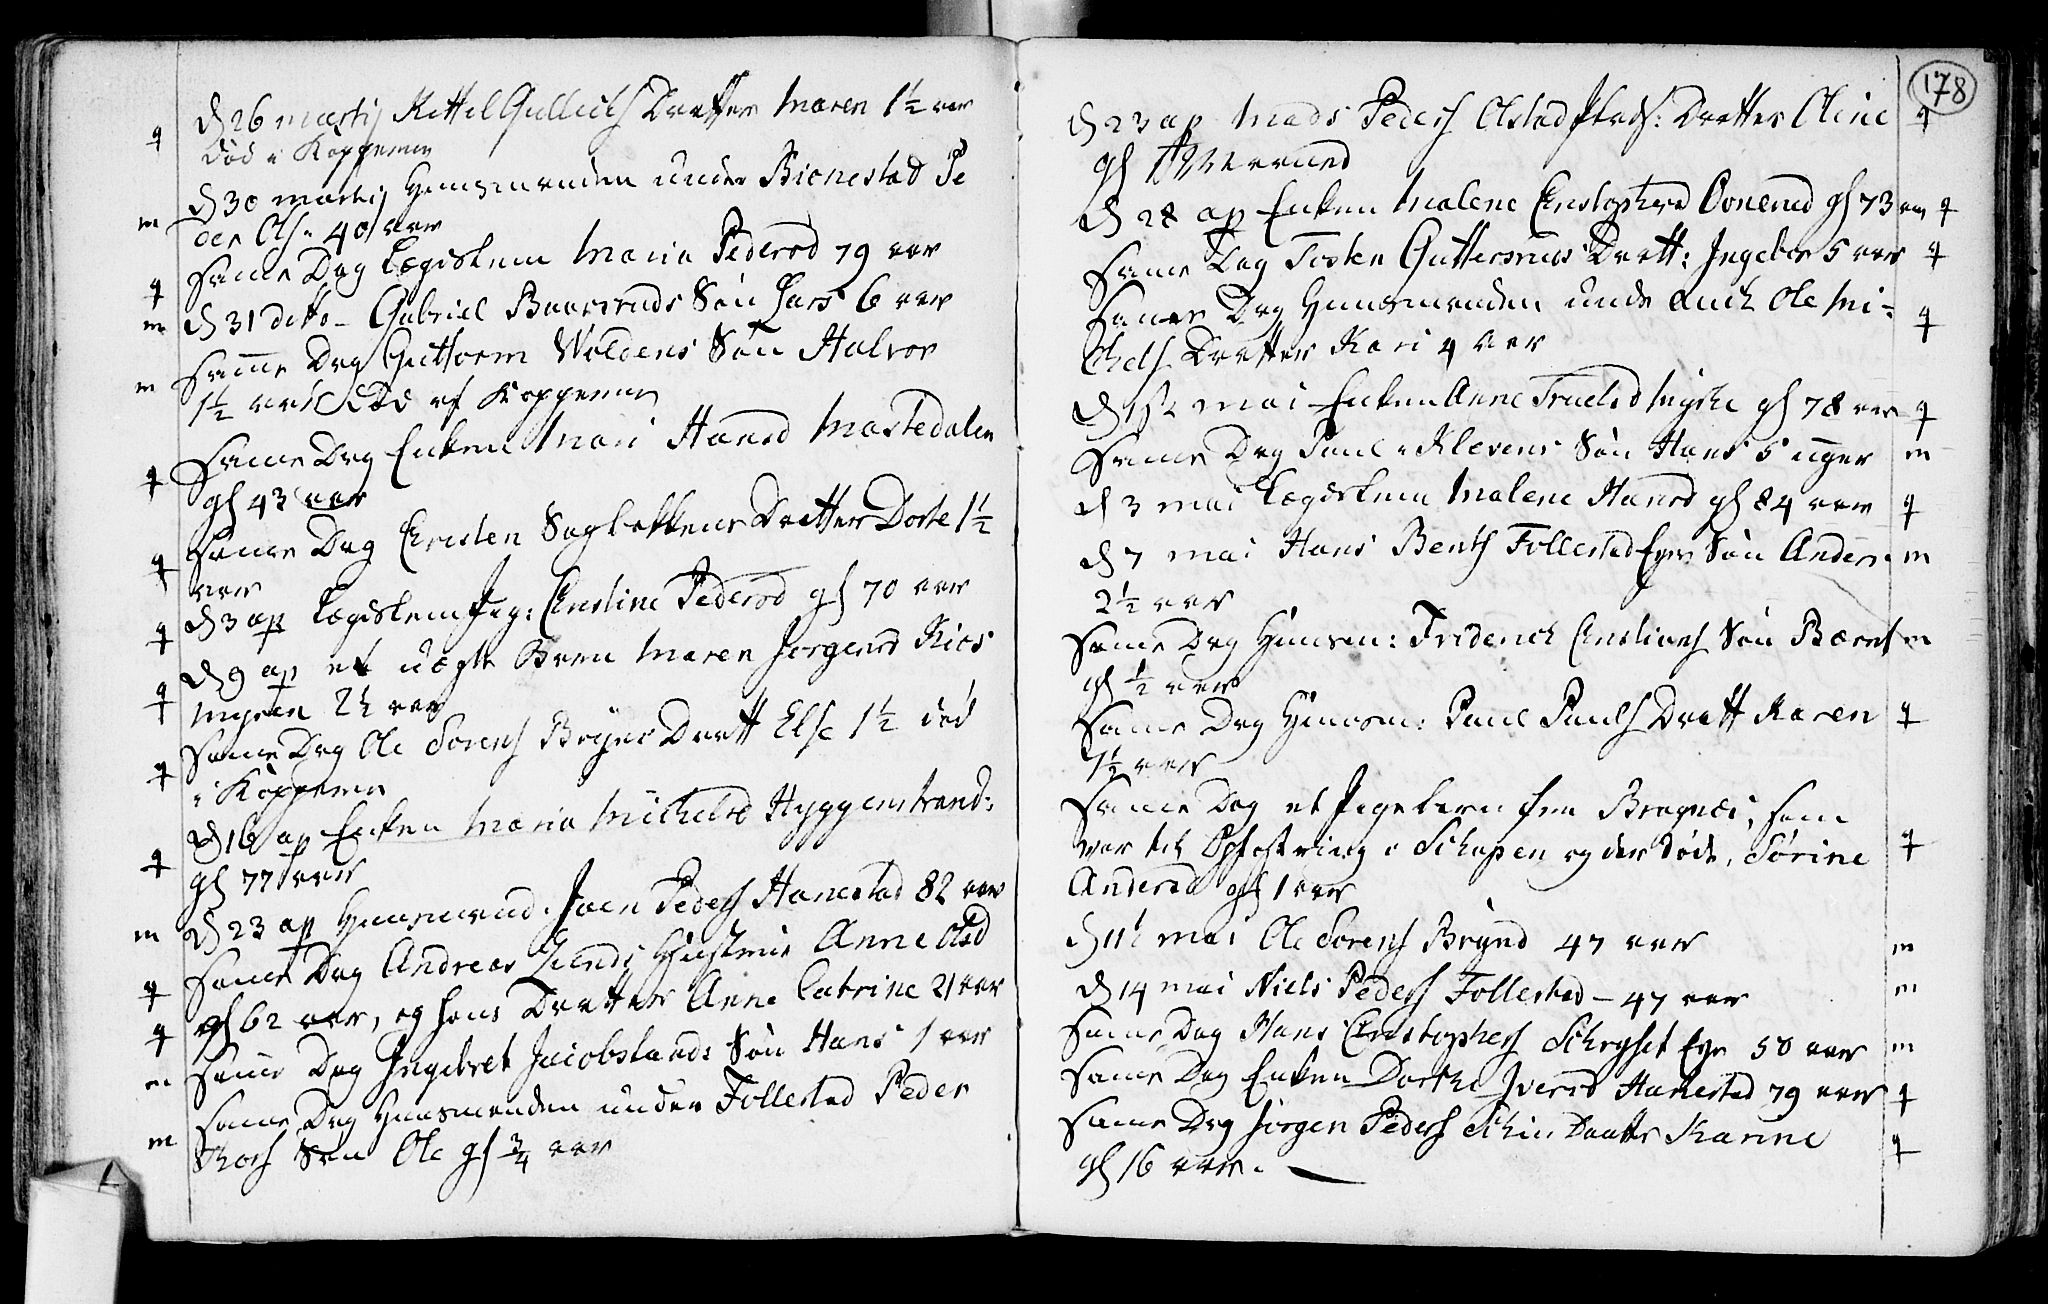 d 26 martij Kittel Gullichs Daatter Maren 1½ aar
død i Kopperne
d 30 martij Huusmanden under Bionestad Pe
der Ols: 40 aar
Same Dag Lægdskone Maria Pedersd 79 aar
d 31 dito - Gabriel Baarsruds Søn Lars 6 aar
Samme Dag Guttorm Woldens Søn Halvor
1½ aar død af Kopperne
Same Dag Enken Mari Hansd Mastedalen
gl 43 aar
Same Dag Christen Sagbakkens Daatter Dorte 1½
aar
d 3 ap Lægdslem Christine Pedersd gl 70 aar
d 9 ap et uægte Barn Maren Jørgensd Kios
myren 2½ aar
Same Dag Ole Sørens Bøyns Daatt Else 1½ død
i Kopperne
d 16 ap Enken Maria Michelsd Hyggenstrand:
gl 77 aar
d 23 ap Huusmand. Joen Peders Hanestad 82 aar
Same Dag Andreas Lunds Hustrue Anne Olsd
gl 62 aar, og hans Daatter Anne Catrine 21 aar
Same Dag Ingebret Jacobslands Søn Hans 1 aar
Same Dag Huusmanden under Follestad Peder
Thors Søn Ole gl ¾ aar
178
d 23 ap Mads Peders Olstad Plads: Daatter Oline
gl
d 28 ap Enken Malene Christophersd Ovnerud gl 73 aar
Same Dag Tosten Guttersruds Daatt: Ingebor 5 aar
Same Dag Huusmanden unde Auch Ole Mi-
chels Daatter Kari 4 aar
d 1st Mai Enken Anne Truelsd Myhre gl 78 aar
Same Dag Paul Klevens Søn Hans 5 uger
d 3 mai Lægdskone Malene Hansd gl 84 aar
d 7 mai Hans Bents Follestad Eye Søn Anders
2½ aar
Same Dag Huusm: Friderich Christians Søn Bærnt
gl ½ aar
Same Dag Huusm: Paul Pauls Daatt Karen
1½ aar
Same Dag et Pigebarn fra Bragnæs, som
var til Opfostring i Schapen og der døde, Sørine
Andersd gl 1 aar
d 11 mai Ole Sørens Brynd 47 aar
d 14 mai Niels Peders Follestad - 47 aar
Same Dag Hans Christophers Schryset Eye 50 aar
Same Dag Enken Dorthe Iversd Hanestad 79 aar
Same Dag Jørgen Peders Schin Daatter Karine
gl 16 aar.